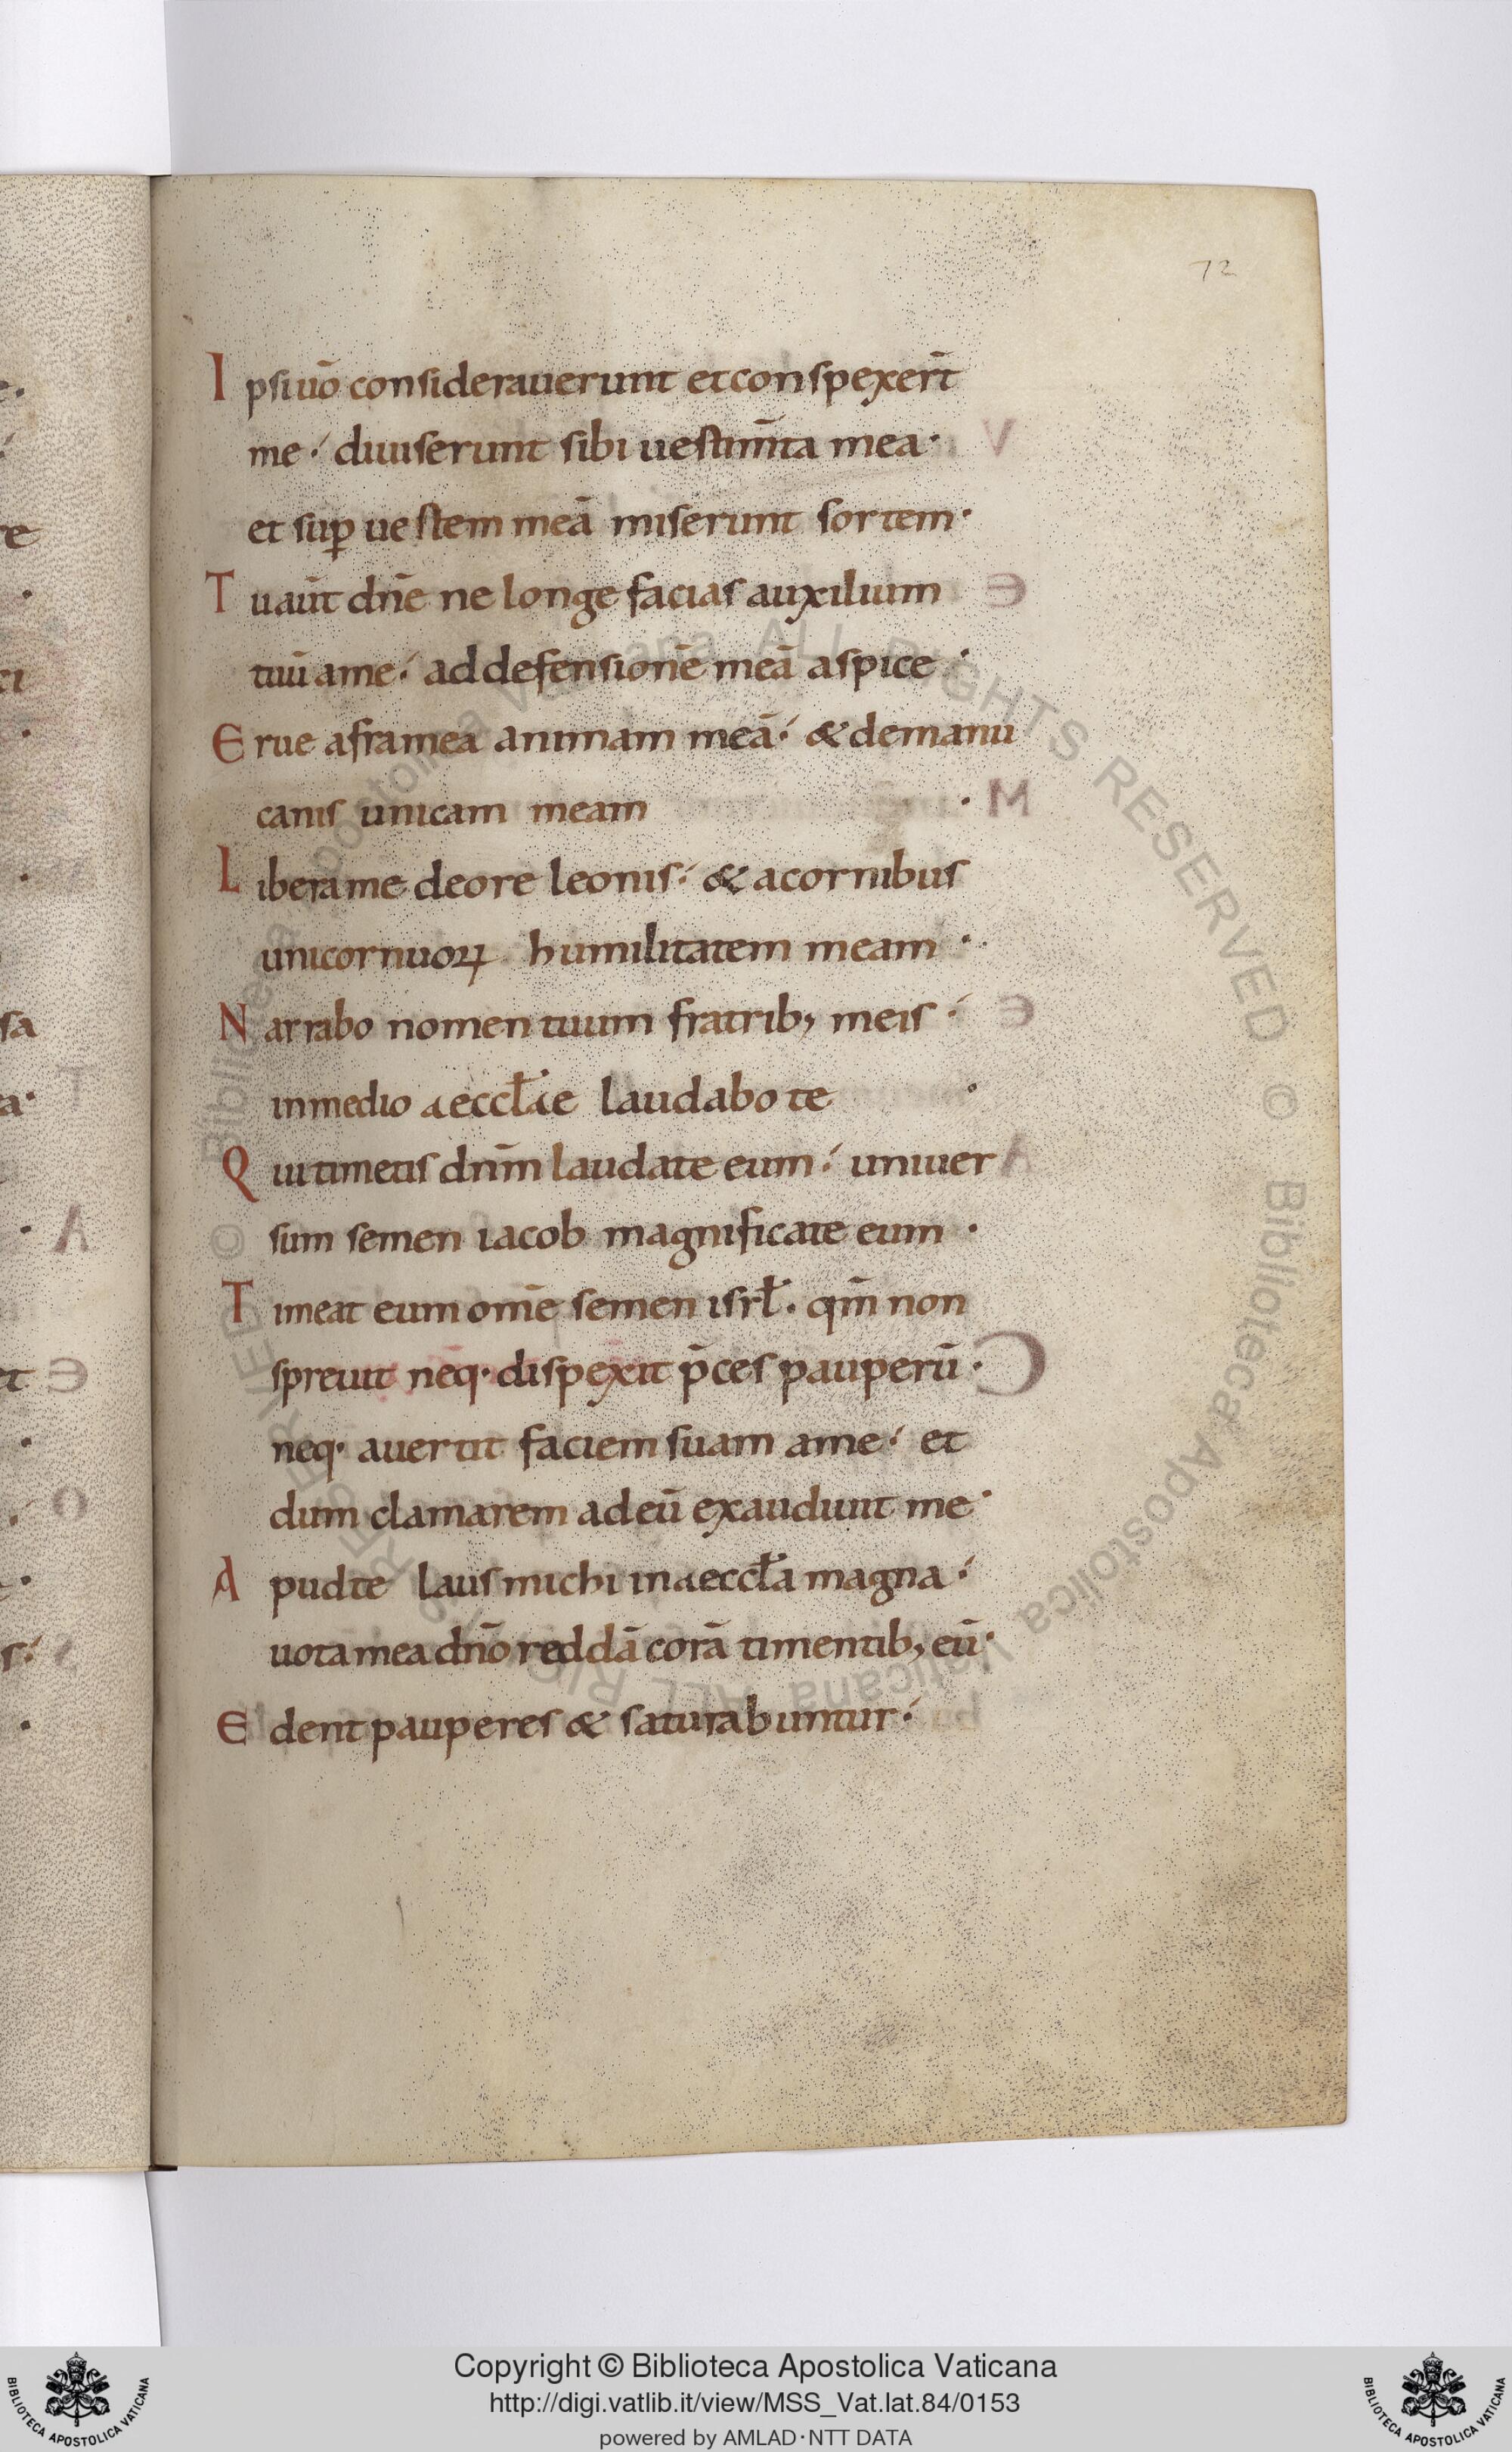 72
Ipsi uō considerauerunt et conspexer̄t
me ⁏ diuiserunt sibi uestim̄ta mea ·
et sup̱ uestem meā miserunt sortem ·
Tu aūt dn̄e ne longe facias auxilium
tuū a me ⁏ ad defensionē meā aspice ·
Erue a framea animam meā ⁏ & de manu
canis unicam meam ·
Libera me de ore leonis ⁏ & a cornibus
unicornuoꝝ humilitatem meam ·
Narrabo nomen tuum fratrib; meis ⁏
in medio aeccƚae laudabo te ·
Qui timetis dnm̄ laudate eum ⁏ uniuer
sum semen iacob magnificate eum ·
Timeat eum om̄e semen isrƚ · qm̄ non
spreuit neq · dispexit p̄ces pauperū ·
neq · auertit faciem suam a me ⁏ et
dum clamarem ad eū exaudiuit me ·
Apud te laus michi in aeccƚa magna ⁏
uota mea dn̄o reddā corā timentib; eū ·
Edent pauperes & saturabuntur ⁏
Copyright © Biblioteca Apostolica Vaticana
http://digi.vatlib.it/view/MSS_Vat.lat.84/0153
powered by AMLAD·NTT DATA
BIBLIOTECA APOSTOLICA VATICANA
BIBLIOTECA APOSTOLICA VATICANA